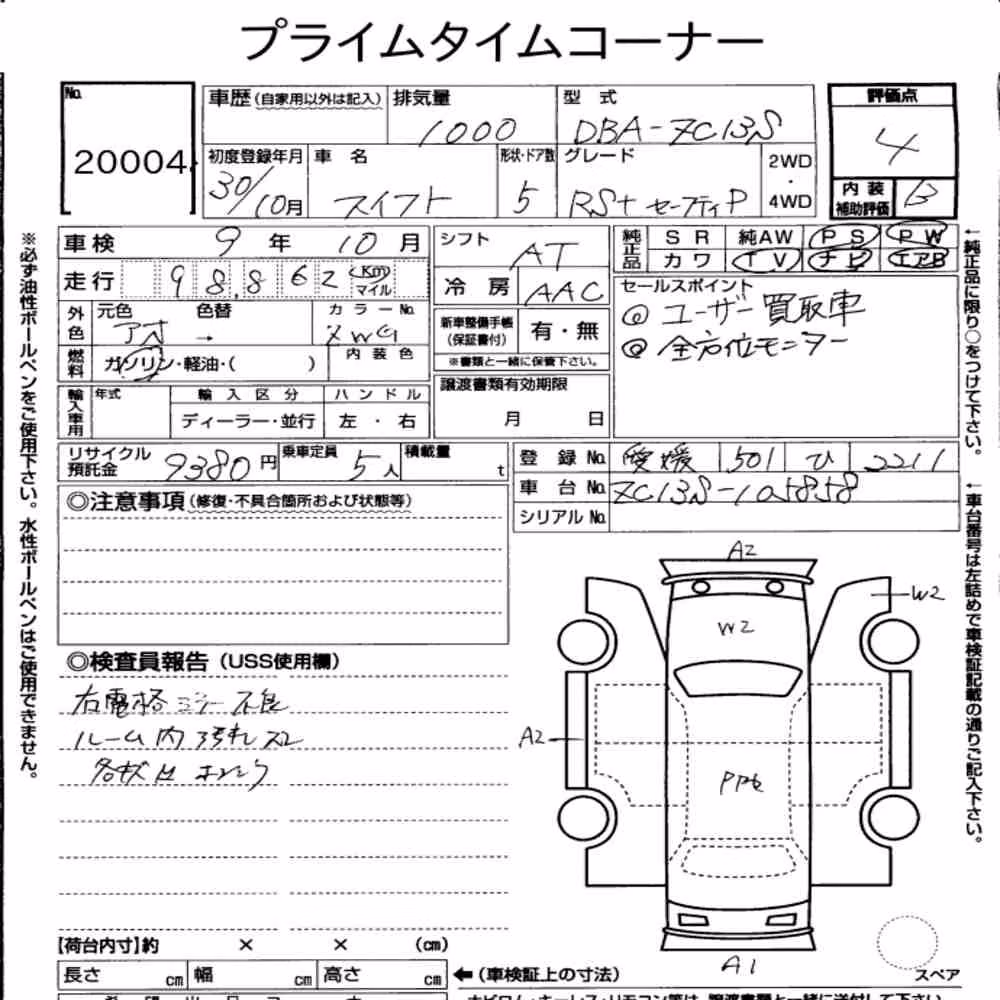 プライムタイムコーナー
No.
20004
車歴（自家用以外は記入）
排気量
1000
型 式
DBA-ZC13S
評価点
4
初度登録年月
30/10月
車 名
スイフト
形状・ドア数
5
グレード
RSt セーフティP
2WD
・
4WD
内 装
補助評価
B
車検
9年 10月
シフト
AT
純正品
SR 純AW PS PW
カワ TV ナビ エアB
走行
98,862
Km
マイル
冷房
AAC
セールスポイント
◎ユーザー買取車
◎全方位モニター
外色
元色
色替
→
カラーNo.
内装色
新車整備手帳
（保証書付）
有・無
※書類と一緒に保管下さい。
燃料
ガソリン・軽油・（ ）
譲渡書類有効期限
月 日
輸入車用
年式
輸入区分
ディーラー・並行
ハンドル
左・右
リサイクル
預託金
9380円
乗車定員
5人
積載量
t
登録No.
愛媛 501 ひ 2211
車台No.
ZC13S-105858
シリアルNo.
◎注意事項（修復・不具合箇所および状態等）
◎検査員報告（USS使用欄）
右電格ミラー不良
ルーム内汚れスレ
A2
W2
W2
A2
A1
スペア
【荷台内寸】約 × × （cm）
長さ cm 幅 cm 高さ cm
←（車検証上の寸法）
※必ず油性ボールペンをご使用下さい。水性ボールペンはご使用できません。
←純正品に限り○をつけて下さい。
←車台番号は左詰めで車検証記載の通りご記入下さい。